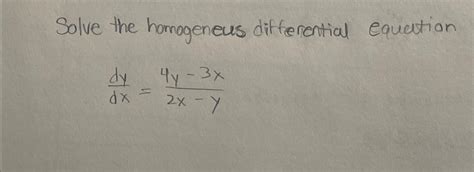 Solve the homogeneus differential equation
dy/dx = (4y - 3x)/(2x - y)